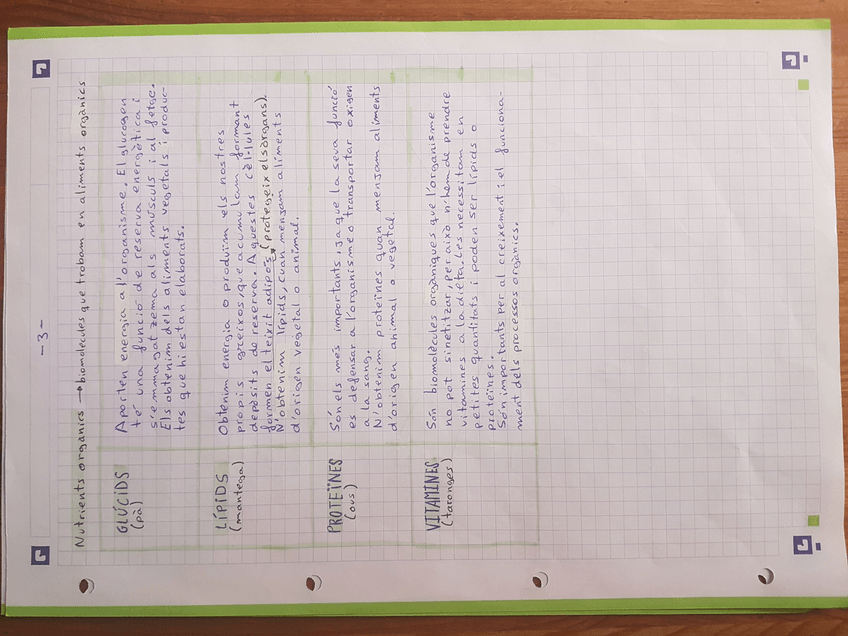 - 3 -
Nutrients orgànics → biomolècules que trobam en aliments orgànics
GLÚCIDS
(pà)
Aporten energia a l'organisme. El glucogen
té una funció de reserva energètica i
s'emmagatzema als músculs i al fetge.
Els obtenim dels aliments vegetals i produc-
tes que hi estan elaborats.
LÍPIDS
(mantega)
Obtenim energia o produïm els nostres
propis greixos, que acumulam formant
depòsits de reserva. Aquestes cèl·lules
formen el teixit adipós (protegeix els òrgans).
N'obtenim lípids, cuan menjam aliments
d'origen vegetal o animal.
PROTEÏNES
(ous)
Són els més importants, ja que la seva funció
es defensar a l'organisme o transportar oxigen
a la sang.
N'obtenim proteïnes quan menjam aliments
d'origen animal o vegetal.
VITAMINES
(taronges)
Són biomolècules orgàniques que l'organisme
no pot sinetitzar, per això n'hem de prendre
vitamines a la dieta. Les necessitam en
petites quantitats i poden ser lípids o
proteïnes.
Són importants per al creixement i el funciona-
ment dels processos orgànics.